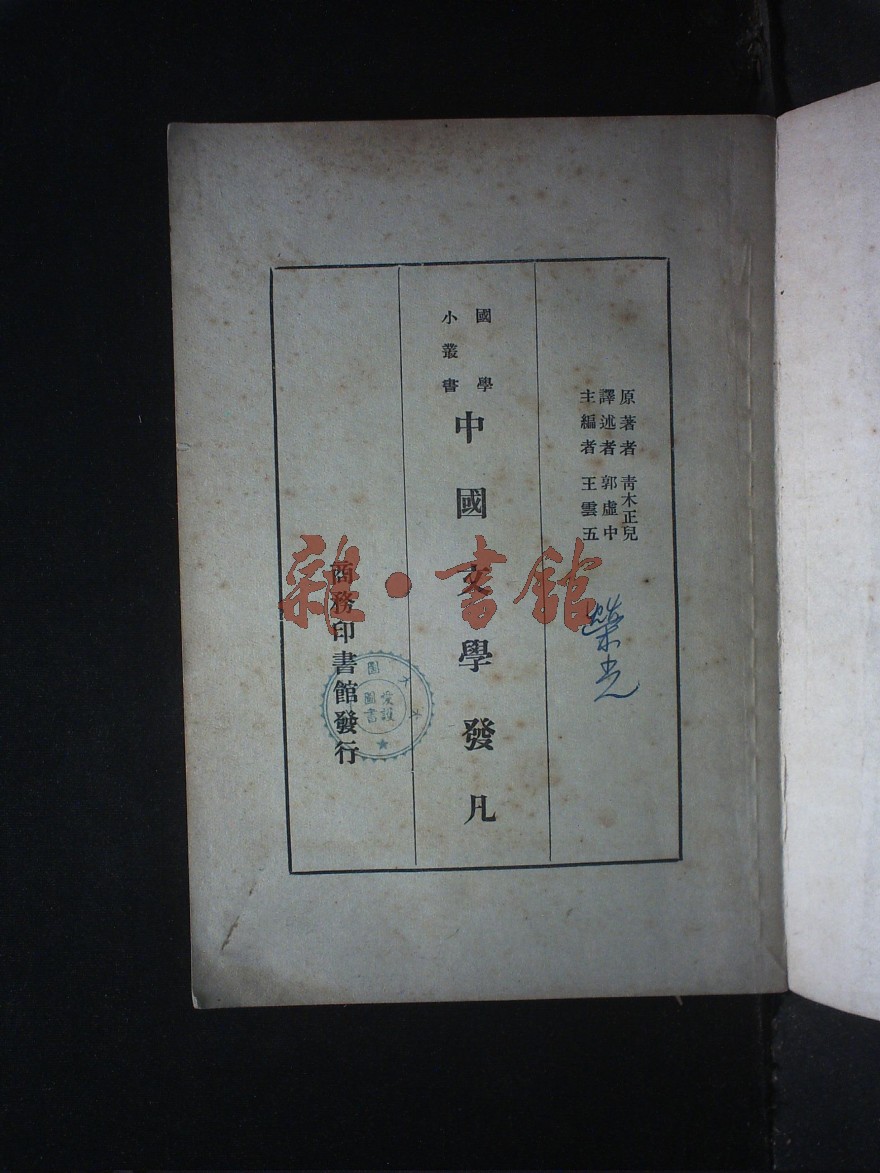 原著者 青木正兒
譯述者 郭虛中
主編者 王雲五
國學
小叢書
中國文學發凡
商務印書館發行
雜·書館
愛護
圖書